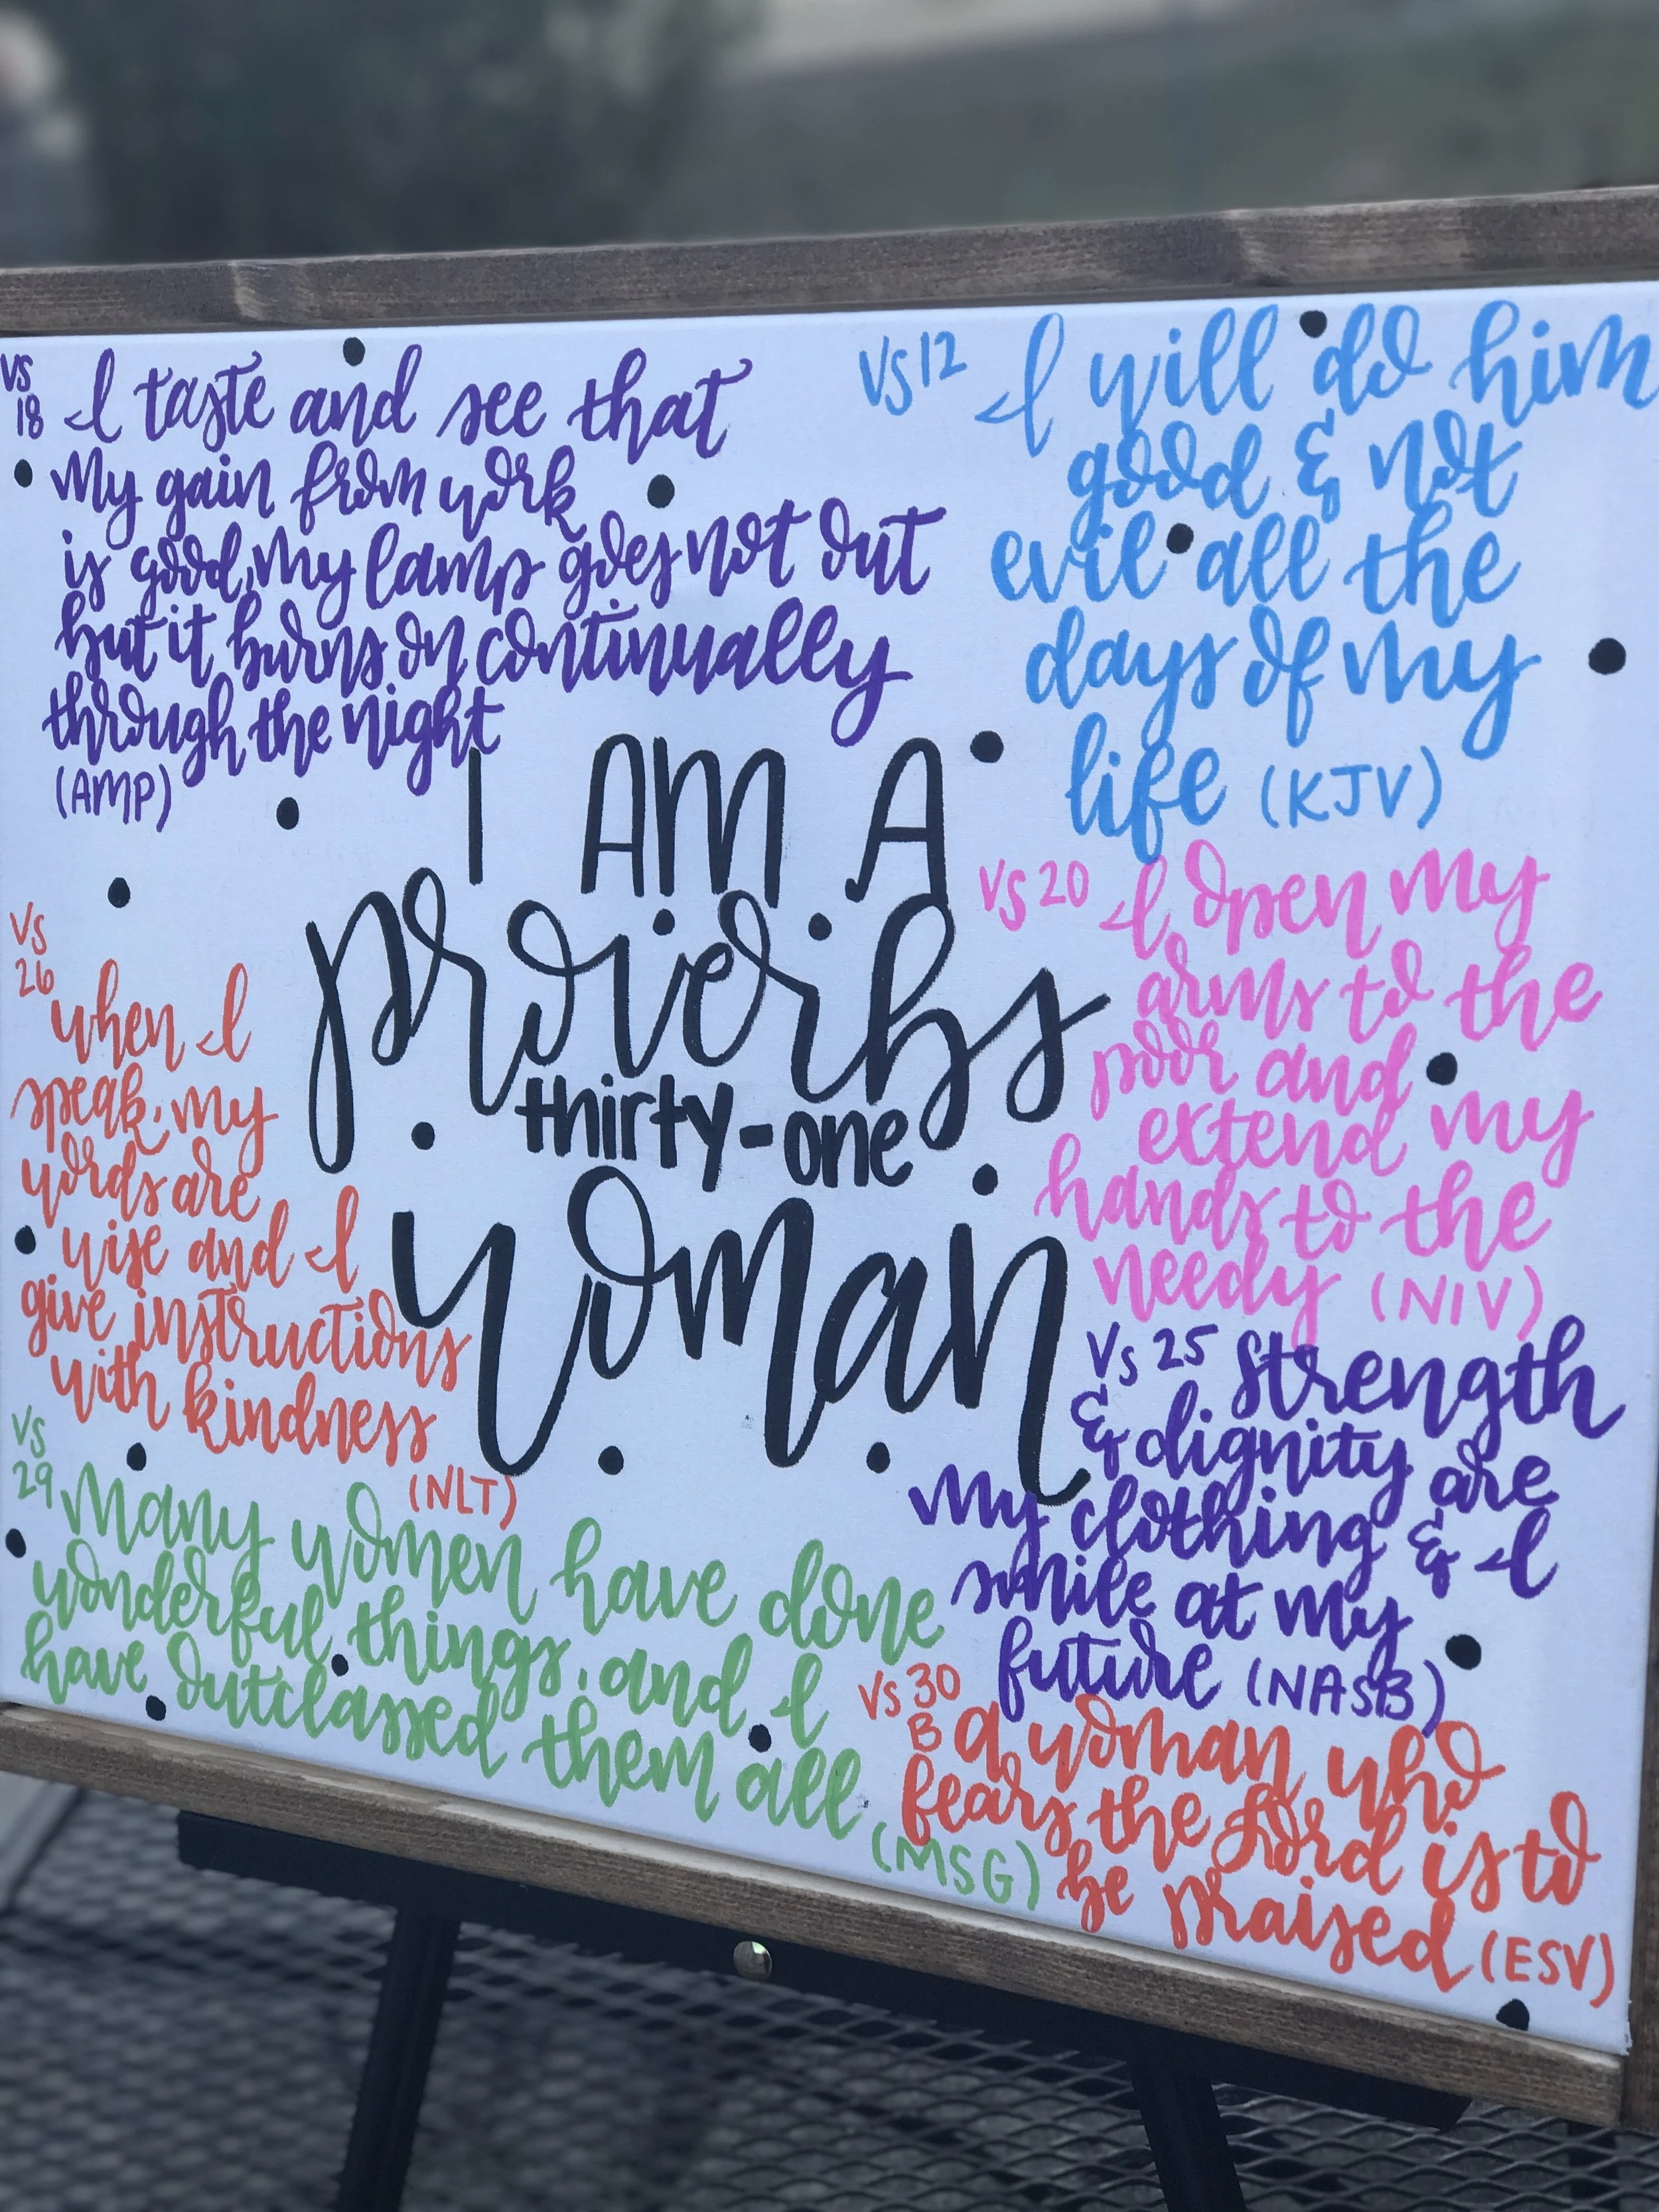 VS
18 I taste and see that
My gain from work
is good, My lamp goes not out
but it burns on continually
through the night
(AMP)
VS 12 I will do him
good & not
evil all the
days of my
life (KJV)
I AM A
proverbs
thirty-one
woman
VS 20 I open my
arms to the
poor and
extend my
hands to the
needy (NIV)
VS
26
when I
speak, my
words are
wise and I
give instructions
with kindness
(NLT)
Vs 25 Strength
& dignity are
My clothing & I
smile at my
future (NASB)
VS
29 Many women have done
wonderful things, and I
have outclassed them all
(MSG)
VS 30
B a woman who
fears the Lord is to
be praised (ESV)